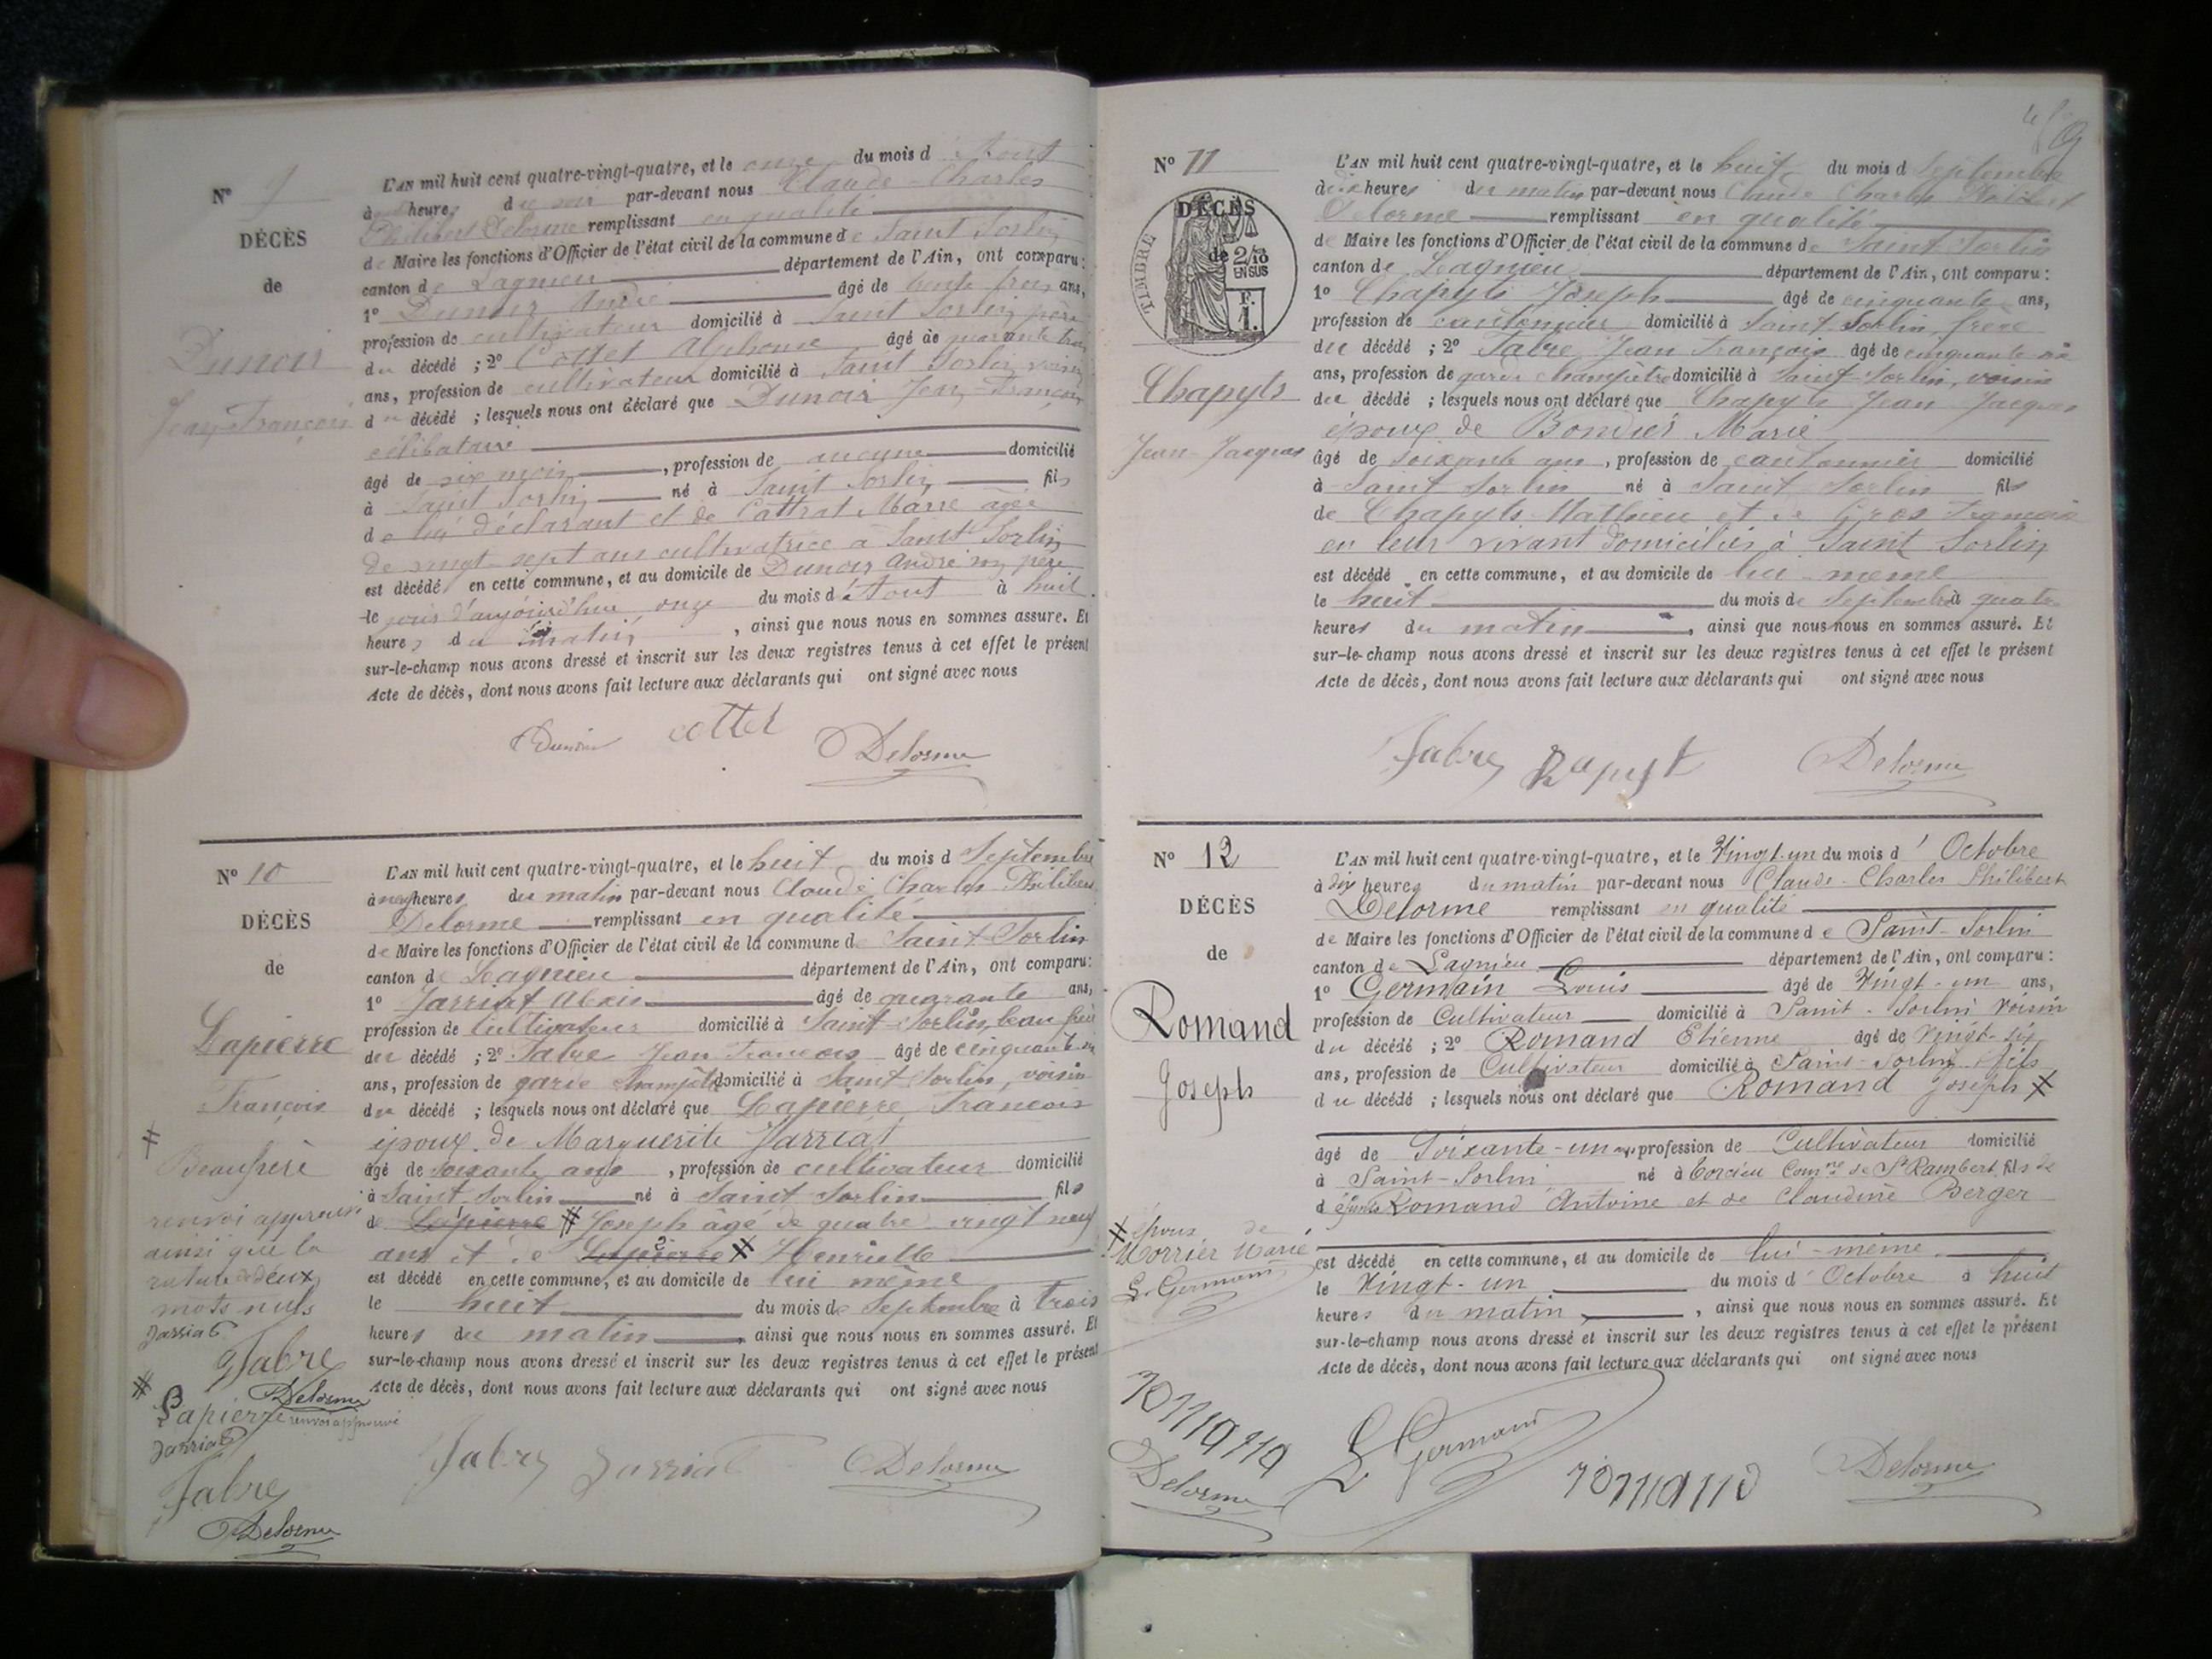 N° 9
DÉCÈS
de
Dunoir
Jean-François
L'AN mil huit cent quatre-vingt-quatre, et le onze du mois d'Aout
à heures du soir par-devant nous Claude-Charles
Philibert Delorme remplissant en qualité
de Maire les fonctions d'Officier de l'état civil de la commune de Saint Sorlin
canton de Lagnieu département de l'Ain, ont comparu:
1° Dunoir André âgé de trente trois ans,
profession de cultivateur domicilié à Saint Sorlin, père
du décédé ; 2° Cottet Alphonse âgé de quarante trois
ans, profession de cultivateur domicilié à Saint Sorlin, voisin
du décédé ; lesquels nous ont déclaré que Dunoir Jean François
célibataire
âgé de six mois, profession de aucune domicilié
à Saint Sorlin né à Saint Sorlin fils
de lui déclarant et de Cattrat Marie âgée
de vingt-sept ans cultivatrice à Saint Sorlin
est décédé en cette commune, et au domicile de Dunoir André son père
le jour d'aujourd'hui onze du mois d'Aout à huit
heures du matin, ainsi que nous nous en sommes assuré. Et
sur-le-champ nous avons dressé et inscrit sur les deux registres tenus à cet effet le présent
Acte de décès, dont nous avons fait lecture aux déclarants qui ont signé avec nous
Dunoir cottet Delorme
N° 10
DÉCÈS
de
Lapierre
François
L'AN mil huit cent quatre-vingt-quatre, et le huit du mois d Septembre
à neuf heures du matin par-devant nous Claude Charles Philibert
Delorme remplissant en qualité
de Maire les fonctions d'Officier de l'état civil de la commune de Saint-Sorlin
canton de Lagnieu département de l'Ain, ont comparu:
1° Jarriat Alexis âgé de quarante ans,
profession de Cultivateur domicilié à Saint-Sorlin, beau frère
du décédé ; 2° Fabre Jean François âgé de cinquante six
ans, profession de garde champêtre domicilié à Saint Sorlin, voisin
du décédé ; lesquels nous ont déclaré que Lapierre François
époux de Marguerite Jarriat
âgé de soixante ans, profession de cultivateur domicilié
à Saint Sorlin né à Saint Sorlin fils
de Lapierre # Joseph âgé de quatre vingt neuf
ans et de Lapierre # Henriette
est décédé en cette commune, et au domicile de lui même
le huit du mois de Septembre à trois
heures du matin, ainsi que nous nous en sommes assuré. Et
sur-le-champ nous avons dressé et inscrit sur les deux registres tenus à cet effet le présent
Acte de décès, dont nous avons fait lecture aux déclarants qui ont signé avec nous
Fabre Jarriat Delorme
# Beaufrère
renvoi approuvé
ainsi que la
rature de deux
mots nuls
Jarriat
Fabre
Delorme
# Lapierre renvoi approuvé
Jarriat
Fabre
Delorme
N° 11
DÉCÈS
TIMBRE
de 2/10
EN SUS
F.
1.
Chapyls
Jean-Jacques
L'AN mil huit cent quatre-vingt-quatre, et le huit du mois d Septembre
à dix heures du matin par-devant nous Claude Charles Philibert
Delorme remplissant en qualité
de Maire les fonctions d'Officier de l'état civil de la commune de Saint-Sorlin
canton de Lagnieu département de l'Ain, ont comparu:
1° Chapyls Joseph âgé de cinquante ans,
profession de cantonnier domicilié à Saint Sorlin, frère
du décédé ; 2° Fabre Jean François âgé de cinquante six
ans, profession de garde champêtre domicilié à Saint-Sorlin, voisin
du décédé ; lesquels nous ont déclaré que Chapyls Jean Jacques
époux de Marie
âgé de soixante ans, profession de cantonnier domicilié
à Saint Sorlin né à Saint Sorlin fils
de Chapyls Mathieu et de Gros
en leur vivant domiciliés à Saint Sorlin
est décédé en cette commune, et au domicile de lui-même
le huit du mois de Septembre à quatre
heures du matin, ainsi que nous nous en sommes assuré. Et
sur-le-champ nous avons dressé et inscrit sur les deux registres tenus à cet effet le présent
Acte de décès, dont nous avons fait lecture aux déclarants qui ont signé avec nous
Fabre Delorme
N° 12
DÉCÈS
de
Romand
Joseph
L'AN mil huit cent quatre-vingt-quatre, et le Vingt-un du mois d'Octobre
à dix heures du matin par-devant nous Claude-Charles Philibert
Delorme remplissant en qualité
de Maire les fonctions d'Officier de l'état civil de la commune de Saint-Sorlin
canton de Lagnieu département de l'Ain, ont comparu:
1° Germain Louis âgé de Vingt-un ans,
profession de Cultivateur domicilié à Saint-Sorlin voisin
du décédé ; 2° Romand Etienne âgé de Vingt-six
ans, profession de Cultivateur domicilié à Saint-Sorlin fils
du décédé ; lesquels nous ont déclaré que Romand Joseph #
âgé de Soixante-un ans, profession de Cultivateur domicilié
à Saint-Sorlin né à Torcieu Comne de St Rambert fils de
défunts Romand Antoine et de Claudine Berger
est décédé en cette commune, et au domicile de lui-même
le Vingt-un du mois d'Octobre à huit
heures du matin, ainsi que nous nous en sommes assuré. Et
sur-le-champ nous avons dressé et inscrit sur les deux registres tenus à cet effet le présent
Acte de décès, dont nous avons fait lecture aux déclarants qui ont signé avec nous
# époux de
Morrier Marie
L. Germain
romand
Delorme
L Germain romand Delorme